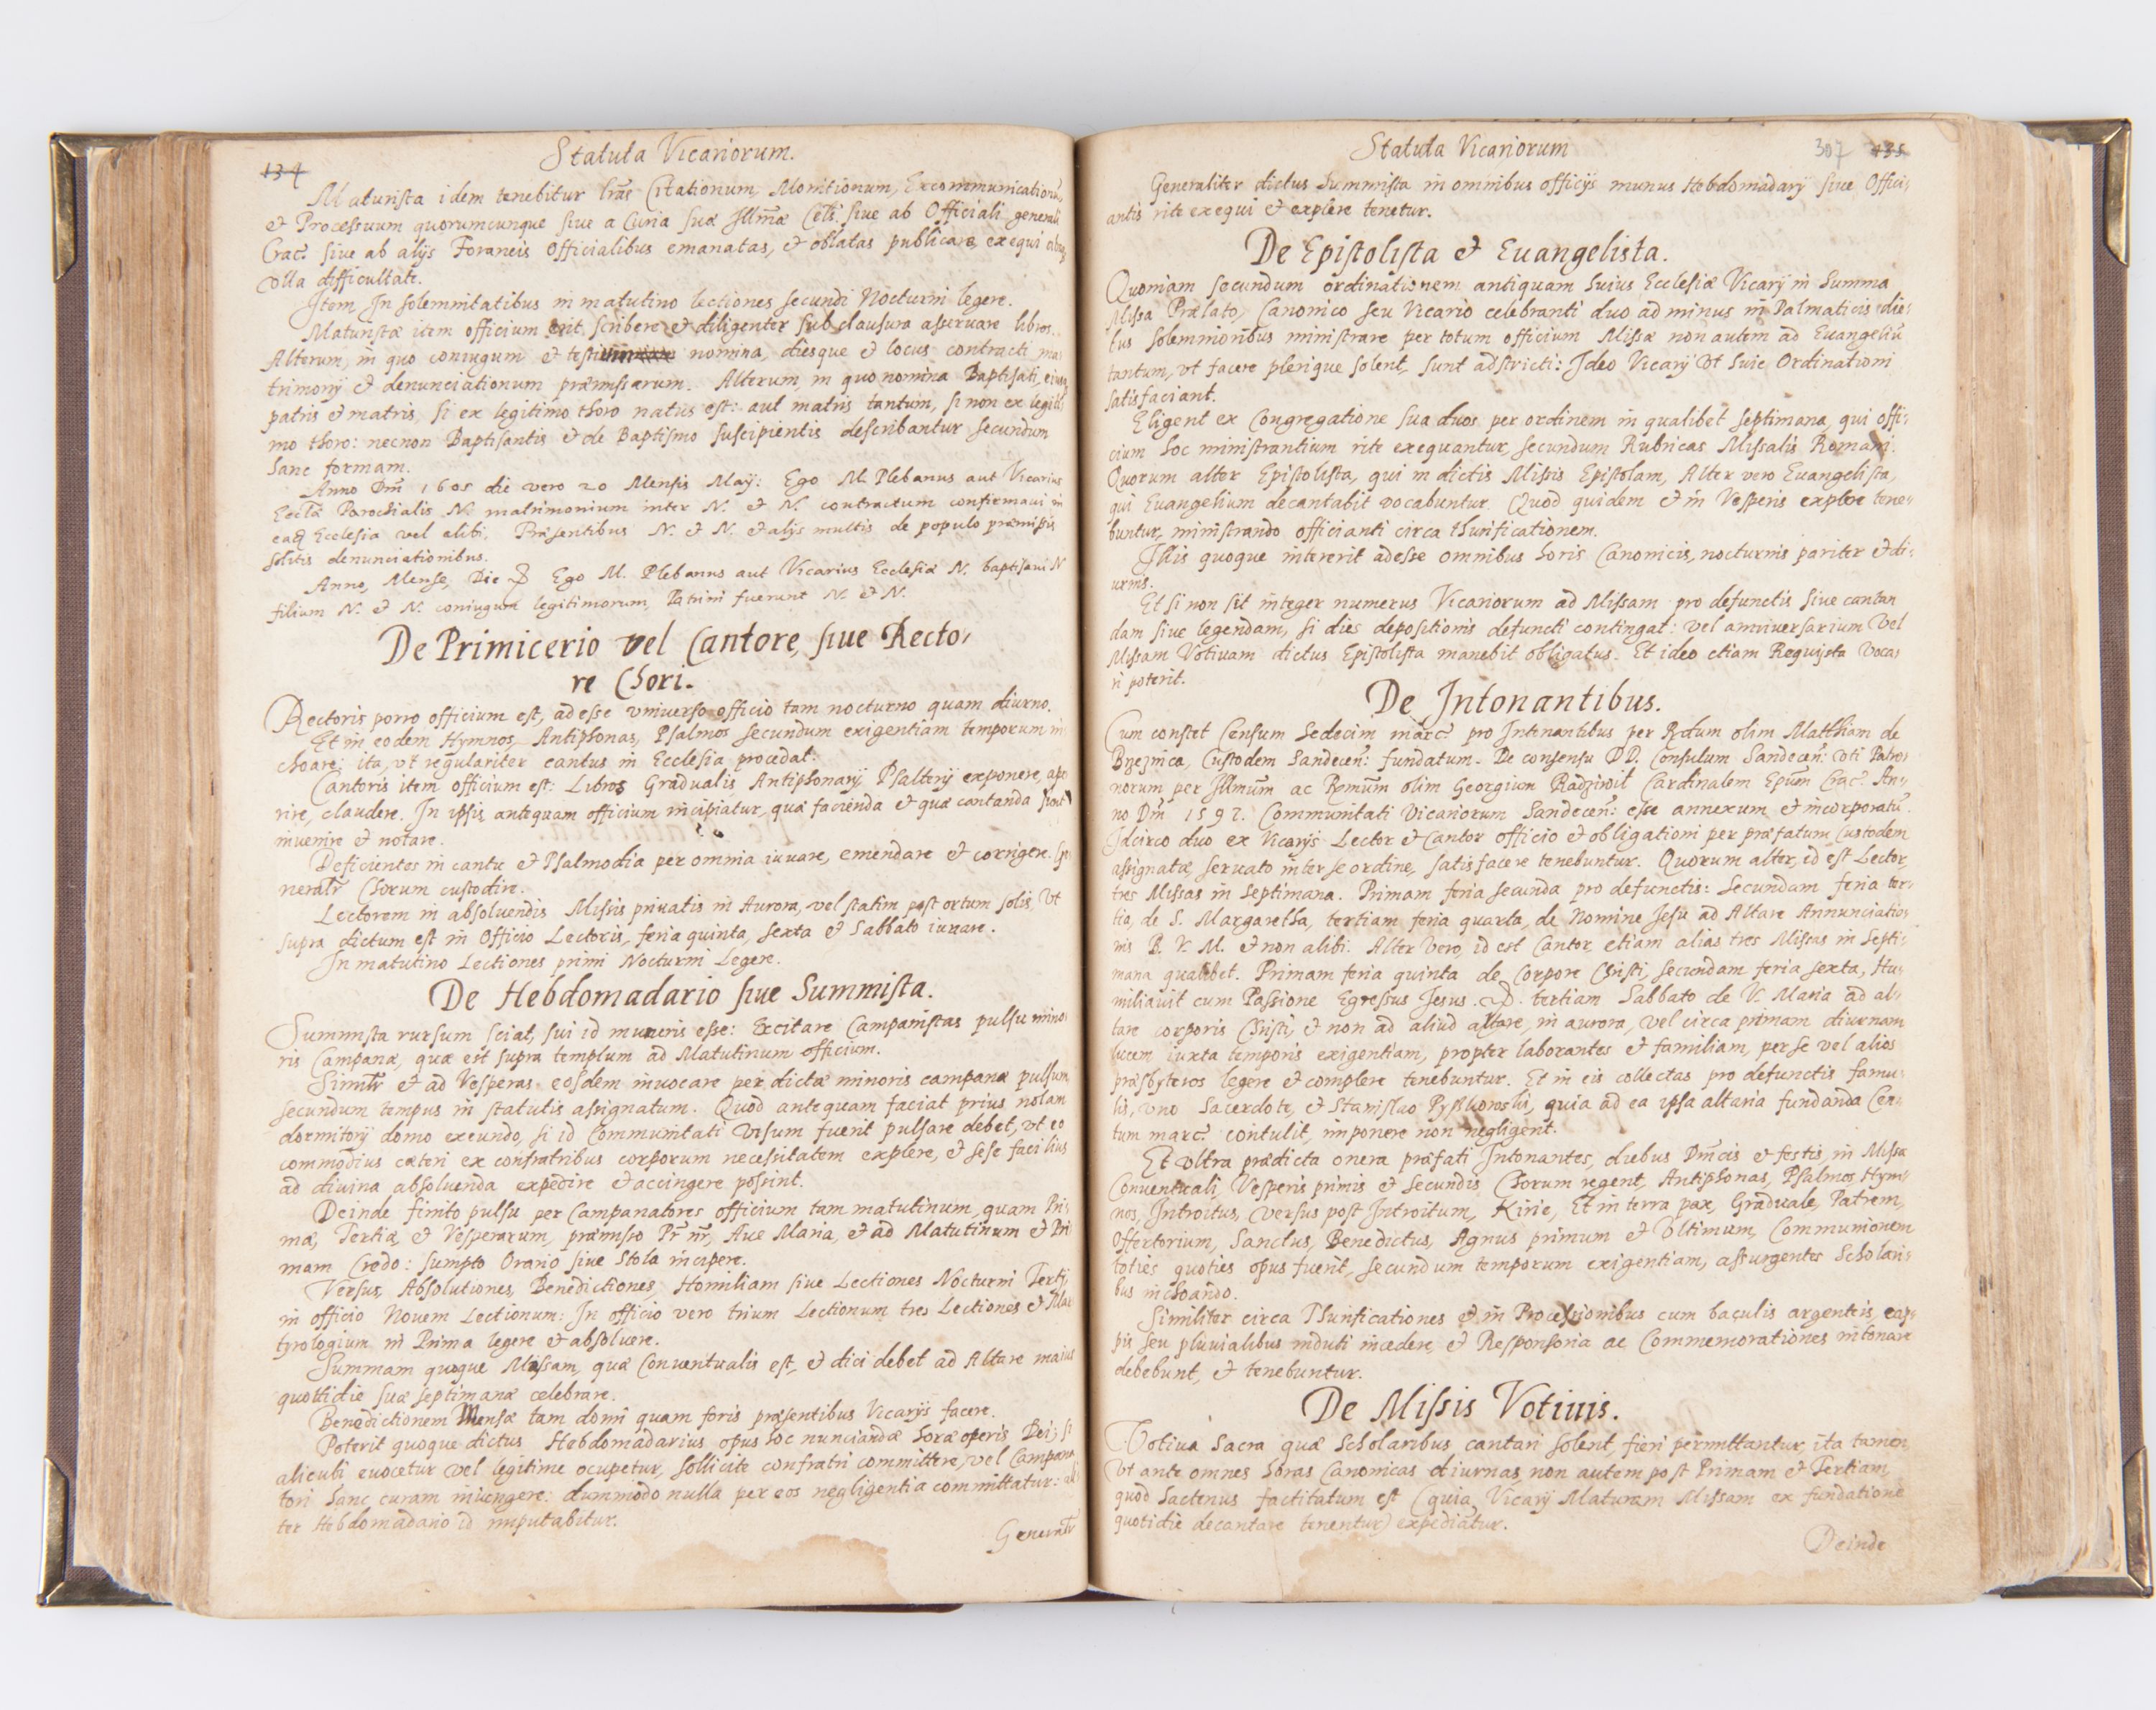 134
Statuta Vicariorum.
Maturista idem tenebitur lras Citationum, Monitionum, Excommunication
et Processuum quorumcunque siue a Curia suæ Illmæ Cels. siue ab Officiali generali
Crac. siue ab alijs Foraneis Officialibus emanatas, et oblatas publicare exequi absq
vlla difficultate.
Item In solemnitatibus in matutino lectiones secundi Nocturni legere.
Maturistæ item officium erit scribere et diligenter sub clausura asseruare libros.
Alterum, in quo coniugum et nomina, diesque et locus contracti ma
trimonij et denunciationum præmissarum. Alterum, in quo nomina Baptisati, eiusq
patris et matris, si ex legitimo thoro natus est: aut matris tantum, si non ex legiti
mo thoro: necnon Baptisantis et de Baptismo suscipientis describantur secundum
hanc formam.
Anno Dm̃ 1605 die vero 20 Mensis Maij: Ego M. Plebanus aut Vicarius
Ecclæ Parochialis N. matrimonium inter N. et N. contractum confirmaui in
eaq Ecclesia vel alibi. Præsentibus N. et N. et alijs multis de populo præmissis
solitis denunciationibus.
Anno, Mense, Die Ego M. Plebanus aut Vicarius Ecclesiæ N. baptisaui N
filium N. et N. coniugum legitimorum, Patrini fuerunt N. et N.
De Primicerio vel Cantore, siue Recto,
re Chori.
Rectoris porro officium est, adesse vniuerso officio tam nocturno quam diurno.
Et in eodem Hymnos, Antiphonas, Psalmos secundum exigentiam temporum in
choare: ita, vt regulariter cantus in Ecclesia procedat.
Cantoris item officium est: Libros Gradualis, Antiphonarij, Psalterij exponere, ape
rire, claudere. In ipsis antequam officium incipiatur, quæ facienda et quæ cantanda sint
inuenire et notare.
Deficientes in cantu et Psalmodia per omnia iuuare, emendare et corrigere. Ge
neralr Chorum custodire.
Lectorem in absoluendis Missis priuatis in Aurora, vel statim post ortum solis, vt
supra dictum est in Officio Lectoris, feria quinta, sexta et Sabbato iuuare.
In matutino Lectiones primi Nocturni Legere.
De Hebdomadario siue Summista.
Summista rursum sciat, sui id muneris esse: Excitare Campanistas pulsu mino
ris Campanæ, quæ est supra templum ad Matutinum officium.
Similr et ad Vesperas eosdem inuocare per dictæ minoris campanæ pulsum
secundum tempus in statutis assignatum. Quod antequam faciat prius nolam
dormitorij domo exeundo, si id Communitati visum fuerit pulsare debet, vt eo
commodius cæteri ex confratribus corporum necessitatem explere, et sese facilius
ad diuina absoluenda expedire et accingere possint.
Deinde finito pulsu per Campanatores officium tam matutinum, quam Pri,
mæ, Tertiæ, et Vesperarum, præmisso Pr nr, Aue Maria, et ad Matutinum et Pri
mam Credo: sumpto Orario siue Stola incipere.
Versus, Absolutiones, Benedictiones, Homiliam siue Lectiones Nocturni Tertij,
in officio Nouem Lectionum: In officio vero trium Lectionum tres Lectiones et Mar
tyrologium in Prima legere et absoluere.
Summam quoque Missam, quæ Conuentualis est, et dici debet ad Altare maius
quottidie suæ septimanæ celebrare.
Benedictionem Mensæ tam domi quam foris præsentibus Vicarijs facere.
Poterit quoque dictus Hebdomadarius opus hoc nunciandæ horæ operis Dei, si
alicubi euocetur vel legitime ocupetur, sollicite confratri committere, vel Campana
tori hanc curam iniungere: dummodo nulla per eos negligentia committatur: ali
ter Hebdomadario id imputabitur.
Generalr
Statuta Vicariorum
307 135
Generaliter dictus Summista in omnibus officijs munus Hebdomadarij siue Offici,
antis rite exequi et explere tenetur.
De Epistolista et Euangelista.
Quoniam secundum ordinationem antiquam huius Ecclesiæ Vicarij in Summa
Missa Prælato, Canonico seu Vicario celebranti duo ad minus in Palmaticis die,
bus solemnioribus ministrare per totum officium Missæ non autem ad Euangeliũ
tantum, vt facere plerique solent, sunt adstricti: Ideo Vicarij vt huic Ordinationi
satisfaciant.
Eligent ex Congregatione sua duos per ordinem in qualibet septimana, qui offi,
cium hoc ministrantium rite exequantur, secundum Rubricas Missalis Romani.
Quorum alter Epistolista, qui in dictis Missis Epistolam, Alter vero Euangelista,
qui Euangelium decantabit vocabuntur. Quod quidem et in Vesperis explere tene,
buntur, ministrando officianti circa thurificationem.
Illis quoque intererit adesse omnibus horis Canonicis, nocturnis pariter et di,
urnis.
Et si non sit integer numerus Vicariorum ad Missam pro defunctis siue cantan
dam siue legendam, si dies depositionis defuncti contingat: vel anniuersarium vel
Missam Votiuam dictus Epistolista manebit obligatus. Et ideo etiam Requista voca,
ri poterit.
De Intonantibus.
Cum constet Censum Sedecim marc. pro Intonantibus per Rdum olim Matthiam de
Brzeznica, Custodem Sandecen: fundatum. De consensu DD. Consulum Sandecen: vti Patro,
norum per Illmum ac Rmum olim Georgium Radziwil Cardinalem Epum Crac. An,
no Dm̃ 1597. Communitati Vicariorum Sandecen: esse annexum et incorporatũ.
Idcirco duo ex Vicarijs Lector et Cantor officio et obligationi per præfatum Custodem
assignatæ, seruato inter se ordine, satisfacere tenebuntur. Quorum alter, id est Lector
tres Missas in septimana. Primam feria secunda pro defunctis: Secundam feria ter,
tia, de S. Margaretha, tertiam feria quarta, de Nomine Jesu ad Altare Annunciatio,
nis B. V. M. et non alibi. Alter vero, id est Cantor, etiam alias tres Missas in Septi,
mana qualibet. Primam feria quinta de Corpore Christi, secundam feria sexta, Hu,
miliauit cum Passione Egressus Jesus. tertiam Sabbato de V. Maria ad al,
tare corporis Christi, et non ad aliud altare, in aurora, vel circa primam diurnam
lucem iuxta temporis exigentiam, propter laborantes et familiam, per se vel alios
præsbyteros legere et complere tenebuntur. Et in eis collectas pro defunctis famu,
lis, vno Sacerdote, et Stanislao quia ad ea ipsa altaria fundanda Cen,
tum marc. contulit, imponere non negligent.
Et vltra prædicta onera præfati Intonantes, diebus Dm̃cis et festis, in Missa
Conuentuali, Vesperis primis et secundis Chorum regent, Antiphonas, Psalmos, Hym,
nos, Introitus, versus post Introitum, Kirie, Et in terra pax, Graduale, Patrem,
Offertorium, Sanctus, Benedictus, Agnus primum et vltimum, Communionem
toties quoties opus fuerit, secundum temporum exigentiam, assurgentes Scholari,
bus inchoando.
Similiter circa Thurificationes et in Processionibus cum baculis argenteis, cap,
pis seu pluuialibus induti incedere, et Responsoria ac Commemorationes intonare
debebunt, et tenebuntur.
De Missis Votiuis.
Votiua Sacra quæ Scholaribus cantari solent, fieri permittantur, ita tamen,
vt ante omnes horas Canonicas diurnas, non autem post Primam et Tertiam,
quod hactenus factitatum est (quia Vicarij Maturam Missam ex fundatione
quotidie decantare tenentur) expediatur.
Deinde